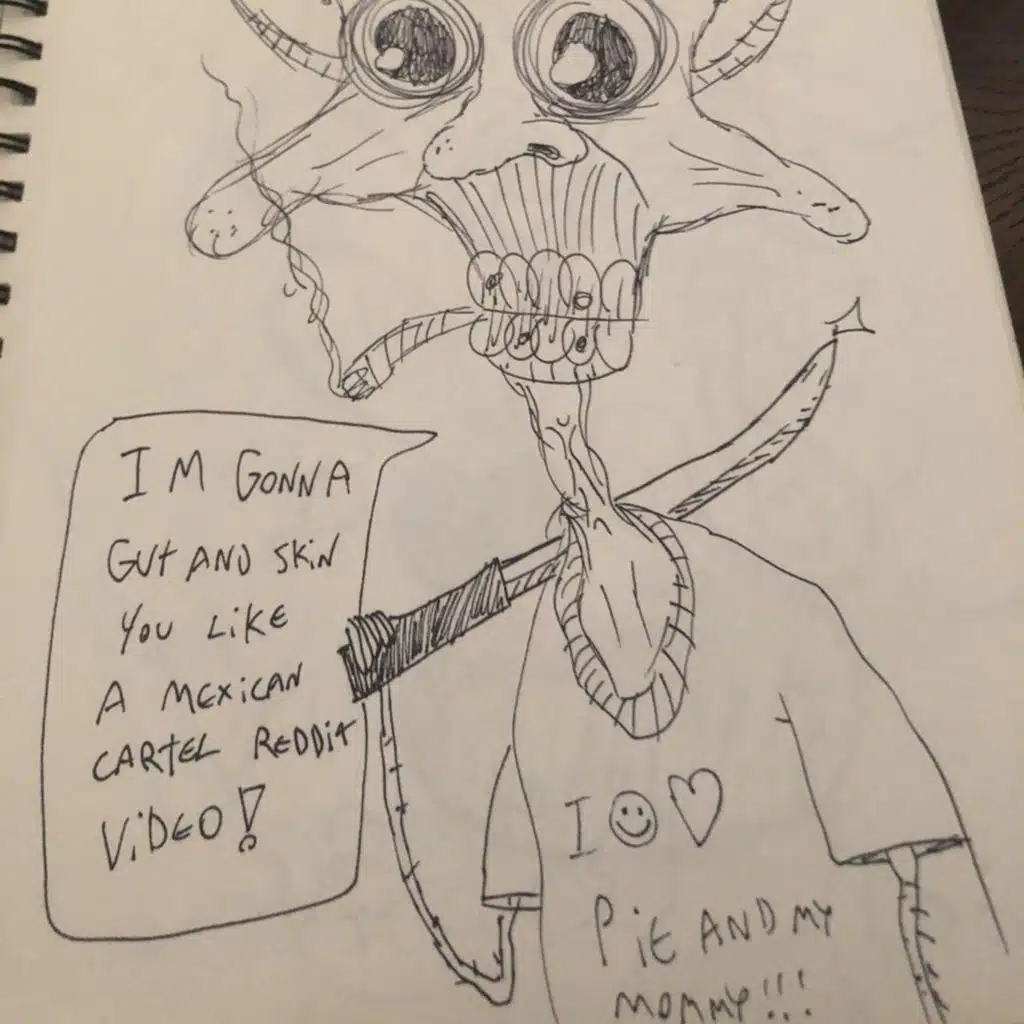 I M GONNA
GUT AND SKIN
YOU LIKE
A MEXICAN
CARTEL REDDIT
VIDEO!
I ☺ ♡
PIE AND MY
MOMMY!!!